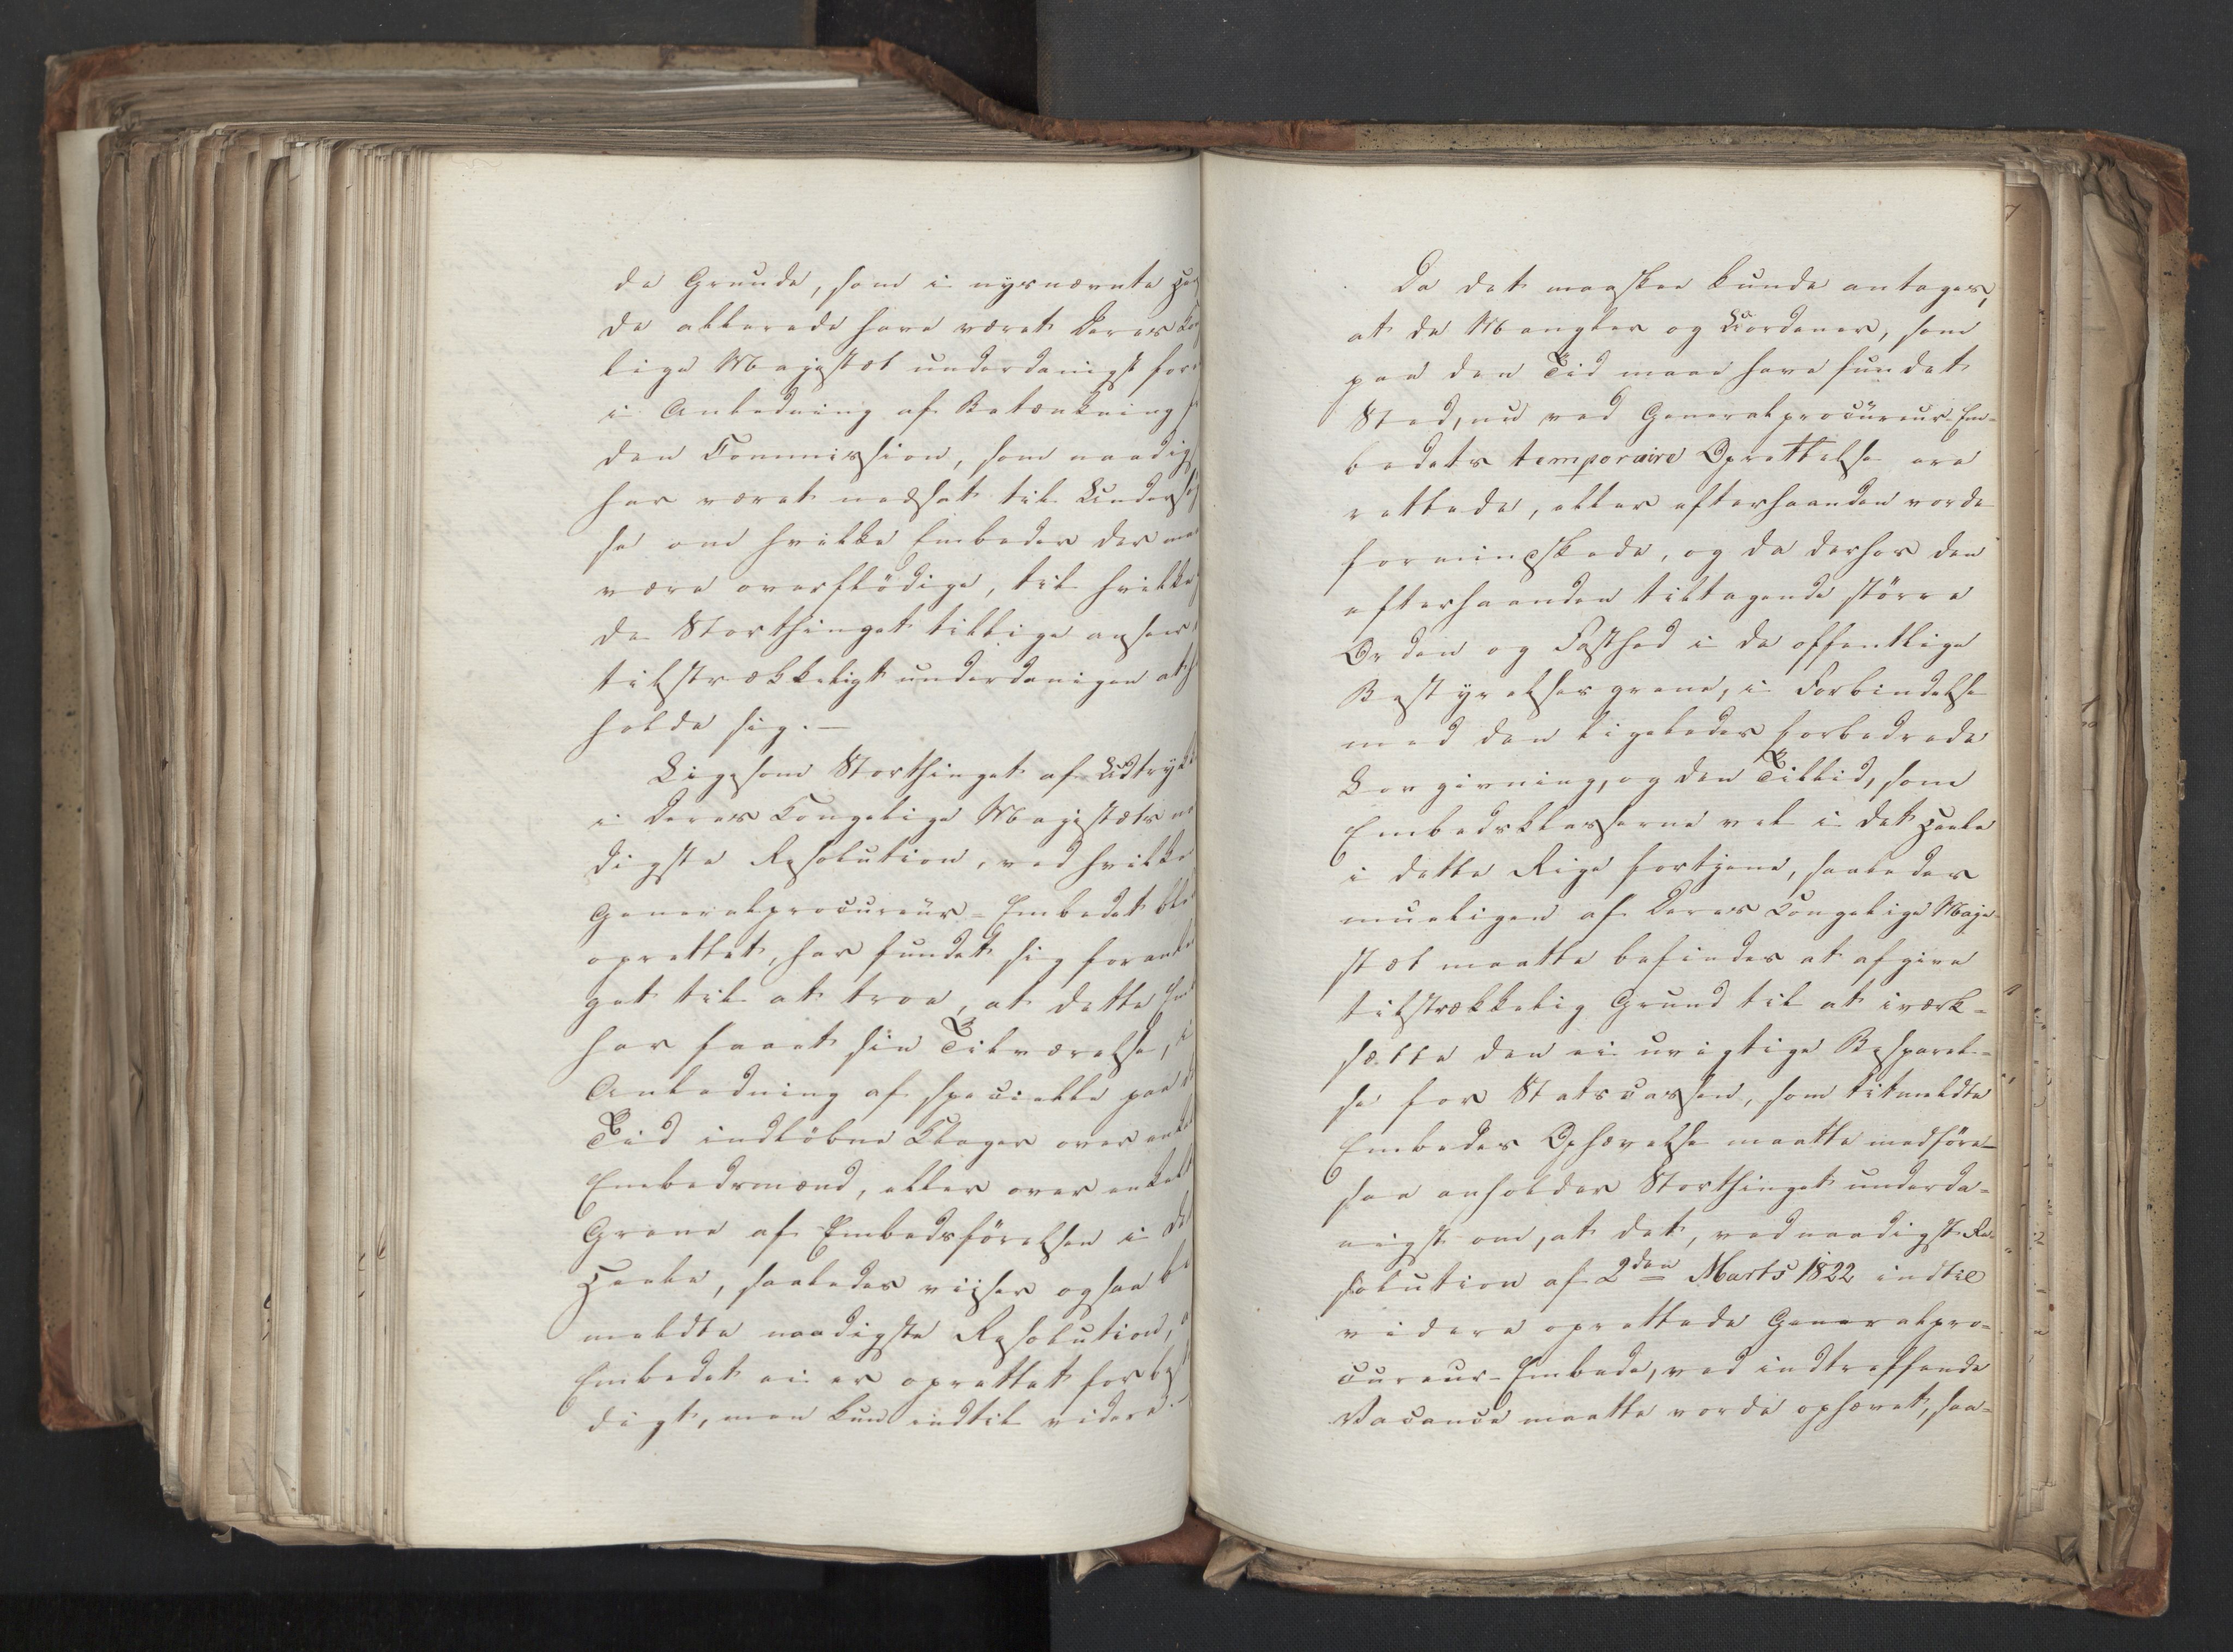 de Grunde, som i nysnævnte Hen
de allerede have været Deres Kon
lige Majestæt underdanigst fore
i Anledning af Betænkning
den Commission, som naadigst
har været nedsat til Undersøgel
se om hvilke Embeder der maa
være overflødige, til hvilke
de Storthinget tillige anseer
tilstrækkeligt underdanigen at
holde sig. —
Ligesom Storthinget af Udtrykke
i Deres Kongelige Majestæts naa
digste Resolution, ved hvilke
Generalprocureur-Embedet blev
oprettet, har fundet sig foranle
get til at troe, at dette Em
har faaet sin Tilværelse, i
Anledning af specielle paa
Tid indløbne Klager over enkel
Embedsmænd, eller over enkelt
Grene af Embedsførelsen i De
Heele, saaledes viiser ogsaa be
meldte naadigste Resolution, a
Embedet ei er oprettet for be
digt, men kun indtil videre. —
Da det maaskee kunde antages,
at de Mangler og Uordener, som
paa den Tid maae have fundet
Sted, nu ved Generalprocureur-Em-
bedets temporaire Oprettelse ere
rettede, eller efterhaanden vorde
formindskede, og da derhos den
efterhaanden tiltagende større
Orden og Fasthed i de offentlige
Bestyrelsesgrene, i Forbindelse
med den ligeledes forbedrede
Lovgivning, og den Tillid, som
Embedsklasserne vel i det Heele
i dette Rige fortjene, saaledes
mueligen af Deres Kongelige Maje-
stæt maatte befindes at afgive
tilstrækkelig Grund til at iværk-
sætte den ei uvigtige Besparel-
se for Statscassen, som titmeldte
Embedes Ophævelse maatte medføre —
saa anholder Storthinget underda-
nigst om, at det, ved naadigst Re-
solution af 2den Marts 1822 indtil
videre oprettede Generalpro-
cureur-Embede, ved indtreffende
Vacance maatte vorde ophævet, saa-